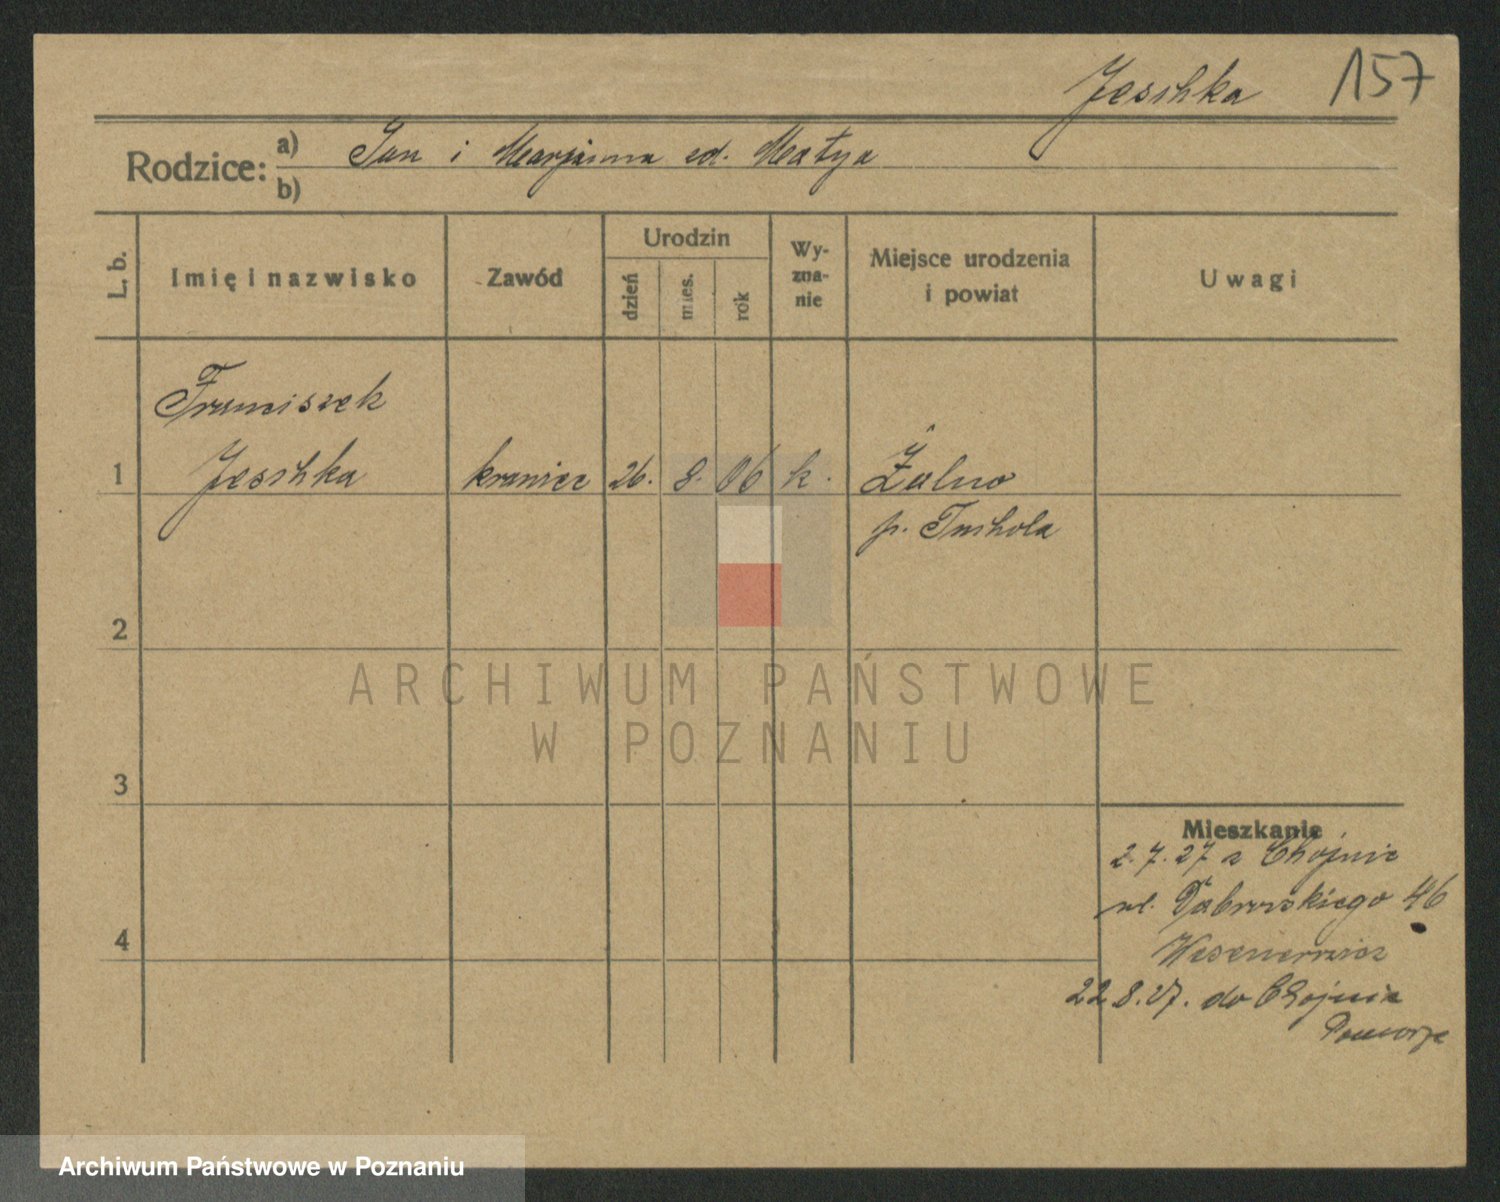 Jeschka 157
Rodzice: a) Jan i Marjanna zd. Matya
b)
L. b. Imię i nazwisko Zawód Urodzin dzień mies. rok Wyznanie Miejsce urodzenia i powiat Uwagi
Franciszek
1 Jeschka krawiec 26. 8. 06 k. Żalno
p. Tuchola
2
ARCHIWUM PAŃSTWOWE
W POZNANIU
3
Mieszkanie
2.7.27 z Chojnic
ul. Dąbrowskiego 46
4
22.8.27. do Chojnic
Pomorze
Archiwum Państwowe w Poznaniu